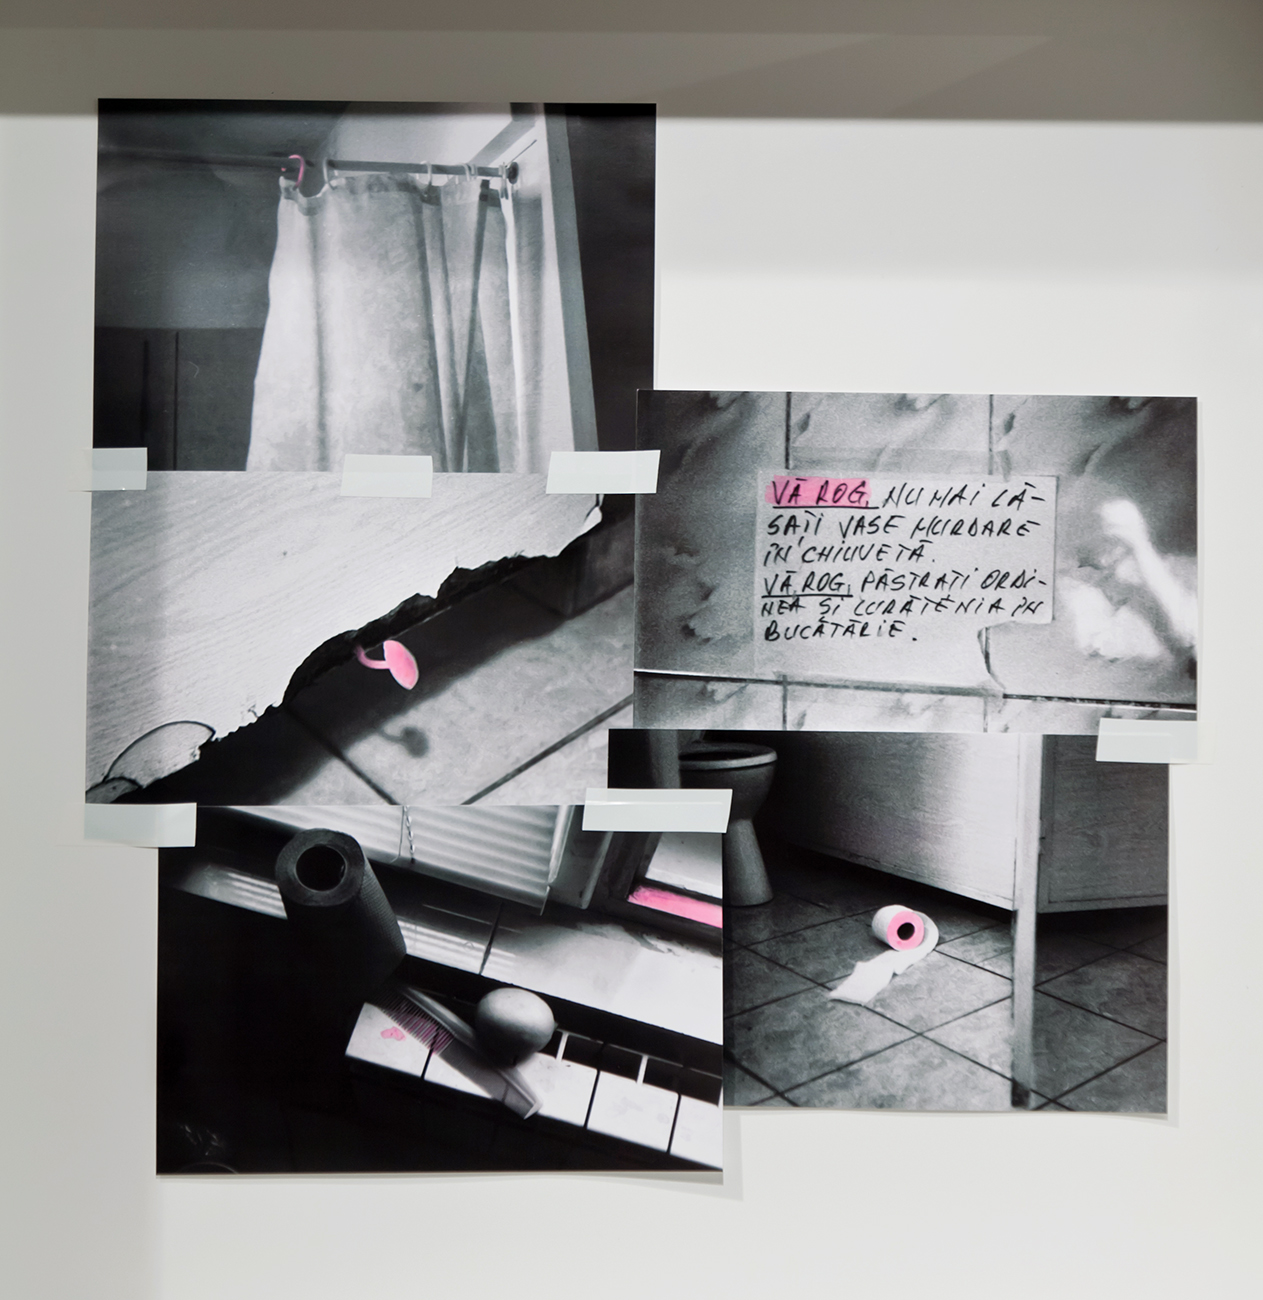 VĂ ROG, NU MAI LĂ-
SAȚI VASE MURDARE
ÎN CHIUVETĂ.
VĂ ROG, PĂSTRAȚI ORDI-
NEA ȘI CURĂȚENIA ÎN
BUCĂTĂRIE.